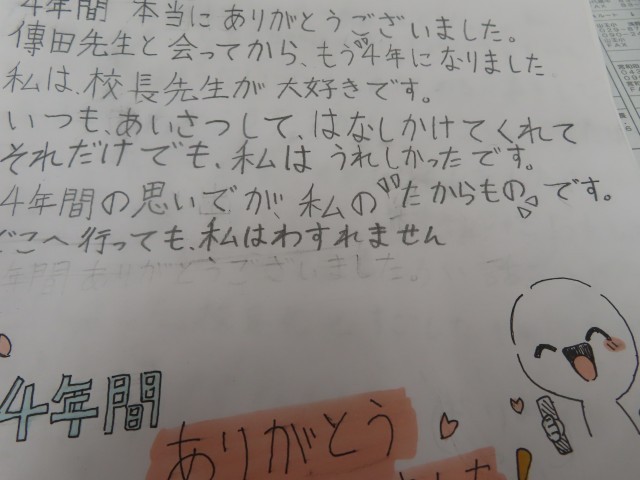 4年間 本当に ありがとうございました。
傳田先生と 会ってから、もう4年に なりました
私は、校長先生が 大好きです。
いつも、あいさつして、はなしかけてくれて
それだけでも、私は うれしかったです。
4年間の思いでが、私の"たからもの"です。
どこへ行っても、私はわすれません
年間 ありがとうございました。
4年間
ありがとう
ました!